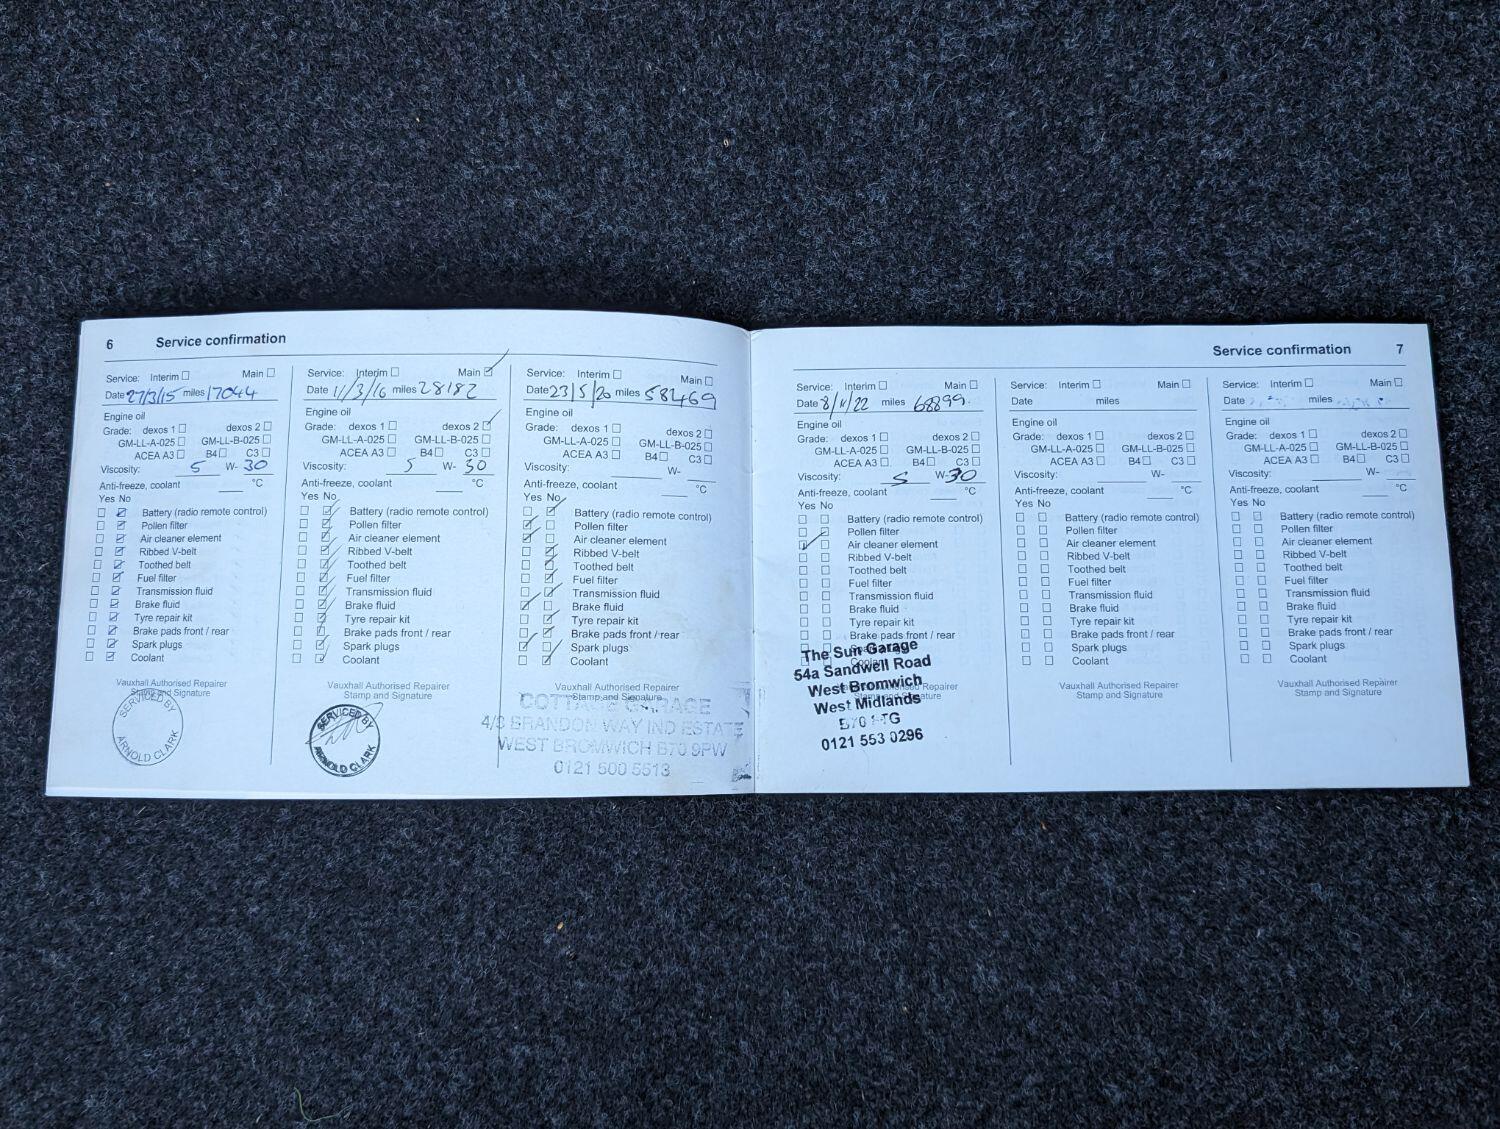 6 Service confirmation
Service: Interim ☐ Main ☐
Date 27/3/15 miles 17044
Engine oil
Grade: dexos 1 ☐ dexos 2 ☐
GM-LL-A-025 ☐ GM-LL-B-025 ☐
ACEA A3 ☐ B4 ☐ C3 ☐
Viscosity: 5 W- 30
Anti-freeze, coolant °C
Yes No
Battery (radio remote control)
Pollen filter
Air cleaner element
Ribbed V-belt
Toothed belt
Fuel filter
Transmission fluid
Brake fluid
Tyre repair kit
Brake pads front / rear
Spark plugs
Coolant
Vauxhall Authorised Repairer
Stamp and Signature
SERVICED BY
ARNOLD CLARK
Service: Interim ☐ Main ☑
Date 11/3/16 miles 28182
Engine oil
Grade: dexos 1 ☐ dexos 2 ☑
GM-LL-A-025 ☐ GM-LL-B-025 ☐
ACEA A3 ☐ B4 ☐ C3 ☐
Viscosity: 5 W- 30
Anti-freeze, coolant °C
Yes No
Battery (radio remote control)
Pollen filter
Air cleaner element
Ribbed V-belt
Toothed belt
Fuel filter
Transmission fluid
Brake fluid
Tyre repair kit
Brake pads front / rear
Spark plugs
Coolant
Vauxhall Authorised Repairer
Stamp and Signature
SERVICED BY
ARNOLD CLARK
Service: Interim ☐ Main ☐
Date 23/5/20 miles 58469
Engine oil
Grade: dexos 1 ☐ dexos 2 ☐
GM-LL-A-025 ☐ GM-LL-B-025 ☐
ACEA A3 ☐ B4 ☐ C3 ☐
Viscosity: W-
Anti-freeze, coolant °C
Yes No
Battery (radio remote control)
Pollen filter
Air cleaner element
Ribbed V-belt
Toothed belt
Fuel filter
Transmission fluid
Brake fluid
Tyre repair kit
Brake pads front / rear
Spark plugs
Coolant
Vauxhall Authorised Repairer
Stamp and Signature
COTTAGE GARAGE
BRANDON WAY IND ESTATE
WEST BROMWICH B70 9PW
0121 500 5513
Service confirmation 7
Service: Interim ☐ Main ☐
Date 8/11/22 miles 68899
Engine oil
Grade: dexos 1 ☐ dexos 2 ☐
GM-LL-A-025 ☐ GM-LL-B-025 ☐
ACEA A3 ☐ B4 ☐ C3 ☐
Viscosity: 5 W- 30
Anti-freeze, coolant °C
Yes No
Battery (radio remote control)
Pollen filter
Air cleaner element
Ribbed V-belt
Toothed belt
Fuel filter
Transmission fluid
Brake fluid
Tyre repair kit
Brake pads front / rear
The Sun Garage
54a Sandwell Road
West Bromwich
West Midlands
0121 553 0296
Service: Interim ☐ Main ☐
Date miles
Engine oil
Grade: dexos 1 ☐ dexos 2 ☐
GM-LL-A-025 ☐ GM-LL-B-025 ☐
ACEA A3 ☐ B4 ☐ C3 ☐
Viscosity: W-
Anti-freeze, coolant °C
Yes No
Battery (radio remote control)
Pollen filter
Air cleaner element
Ribbed V-belt
Toothed belt
Fuel filter
Transmission fluid
Brake fluid
Tyre repair kit
Brake pads front / rear
Spark plugs
Coolant
Vauxhall Authorised Repairer
Stamp and Signature
Service: Interim ☐ Main ☐
Date miles
Engine oil
Grade: dexos 1 ☐ dexos 2 ☐
GM-LL-A-025 ☐ GM-LL-B-025 ☐
ACEA A3 ☐ B4 ☐ C3 ☐
Viscosity: W-
Anti-freeze, coolant °C
Yes No
Battery (radio remote control)
Pollen filter
Air cleaner element
Ribbed V-belt
Toothed belt
Fuel filter
Transmission fluid
Brake fluid
Tyre repair kit
Brake pads front / rear
Spark plugs
Coolant
Vauxhall Authorised Repairer
Stamp and Signature